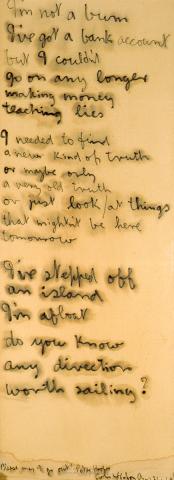 I'm not a bum
I've got a bank account
but I couldn't
go on any longer
making money
teaching lies
I needed to find
a new kind of truth
or maybe only
a very old truth
or just look/at things
that mightn't be here
tomorrow
I've stepped off
an island
I'm afloat
do you know
any direction
worth sailing?
Please may I go out? Peter Hooper
Colin McCahon